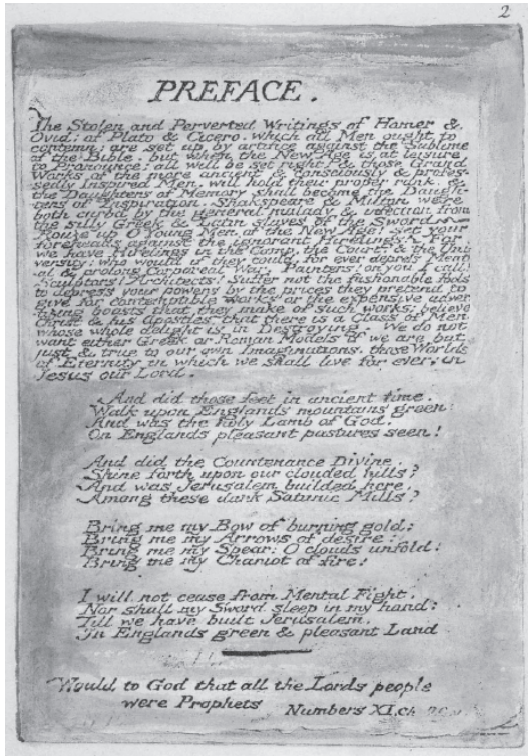 2
PREFACE.
The Stolen and Perverted Writings of Homer &
Ovid: of Plato & Cicero. which all Men ought to
contemn: are set up by artifice against the Sublime
of the Bible. but when the New Age is at leisure
to Pronounce; all will be set right: & those Grand
Works of the more ancient & consciously & profes-
sedly Inspired Men, will hold their proper rank, &
the Daughters of Memory shall become the Daugh-
ters of Inspiration. Shakspeare & Milton were
both curbd by the general malady & infection from
the silly Greek & Latin slaves of the Sword.
Rouze up O Young Men of the New Age! set your
foreheads against the ignorant Hirelings! For
we have Hirelings in the Camp, the Court & the Uni-
versity: who would if they could, for ever depress Ment-
al & prolong Corporeal War. Painters! on you I call!
Sculptors! Architects! Suffer not the fashionable Fools
to depress your powers by the prices they pretend to
give for contemptible works or the expensive adver-
tizing boasts that they make of such works; believe
Christ & his Apostles that there is a Class of Men
whose whole delight is in Destroying. We do not
want either Greek or Roman Models if we are but
just & true to our own Imaginations, those Worlds
of Eternity in which we shall live for ever; in
Jesus our Lord.
And did those feet in ancient time.
Walk upon Englands mountains green:
And was the holy Lamb of God.
On Englands pleasant pastures seen!
And did the Countenance Divine.
Shine forth upon our clouded hills?
And was Jerusalem builded here.
Among these dark Satanic Mills?
Bring me my Bow of burning gold:
Bring me my Arrows of desire:
Bring me my Spear: O clouds unfold:
Bring me my Chariot of fire!
I will not cease from Mental Fight.
Nor shall my Sword sleep in my hand:
Till we have built Jerusalem.
In Englands green & pleasant Land
Would to God that all the Lords people
were Prophets Numbers XI.ch